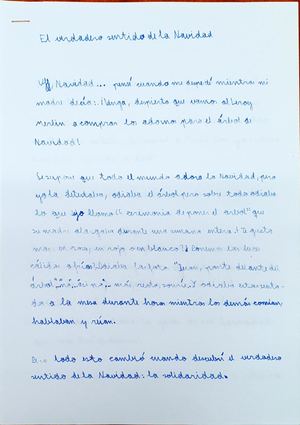 El verdadero sentido de la Navidad
Uff Navidad... pensé cuando me desperté mientras mi
madre decía: ¡Venga, despierta que vamos al Leroy
Merlin a comprar los adornos para el árbol de
Navidad!
Se supone que todo el mundo adora la Navidad, pero
yo la detestaba, odiaba el árbol pero sobre todo odiaba
lo que yo llamo "ceremonia de poner el árbol" que
mi madre alargaba durante una semana entera: ¿Te gusta
más en rosa, en rojo o en blanco? ¿Ponemos las luces
cálidas o frías? Odiaba la foto "Juan, ponte delante del
árbol", más recto, sonríe. odiaba estar
a la mesa durante horas mientras los demás comían
hablaban y reían.
todo esto cambió cuando descubrí el verdadero
sentido de la Navidad: la solidaridad.